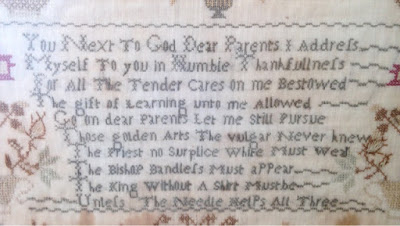 You Next To God Dear Parents I Addreſs
Myself To you in Humble Thankfullneſs
For All The Tender Cares on me Bestowed
The gift of Learning unto me Allowed
Go on dear Parents Let me Still Pursue
Those golden Arts The vulgar Never knew
The Priest no Surplice White Must Wear
The Bishop Bandleſs Must apPear
The King Without A Shirt Must be
Unleſs The Needle Helps All Three